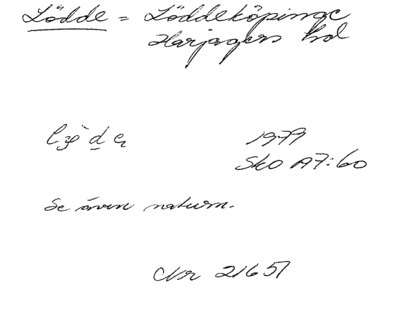 Lödde = Löddeköpinge
Harjagers hd
1979
Sko A7:60
Se även naturn.
Nr 21651